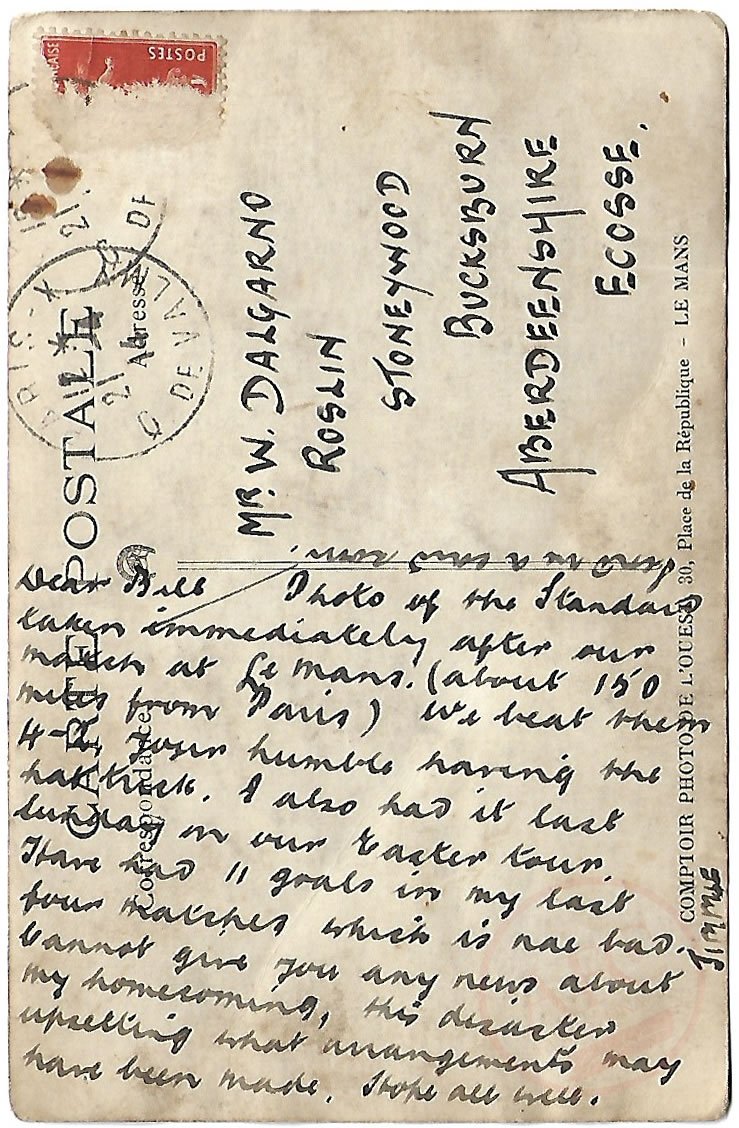 POSTES
CARTE POSTALE
Correspondance
Adresse
Mr. W. DALGARNO
ROSLIN
STONEYWOOD
BUCKSBURN
ABERDEENSHIRE
ECOSSE.
Dear Bill Photo of the Standard
taken immediately after our
match at Le Mans. (about 150
miles from Paris) We beat them
4-2 Your humble having the
hattrick. I also had it last
Sunday on our Easter tour.
Have had 11 goals in my last
four matches which is nae bad.
Cannot give you any news about
my homecoming, this disaster
upsetting what arrangements may
have been made. Hope all well.
JIMMIE
COMPTOIR PHOTO DE L'OUEST 30, Place de la République - LE MANS